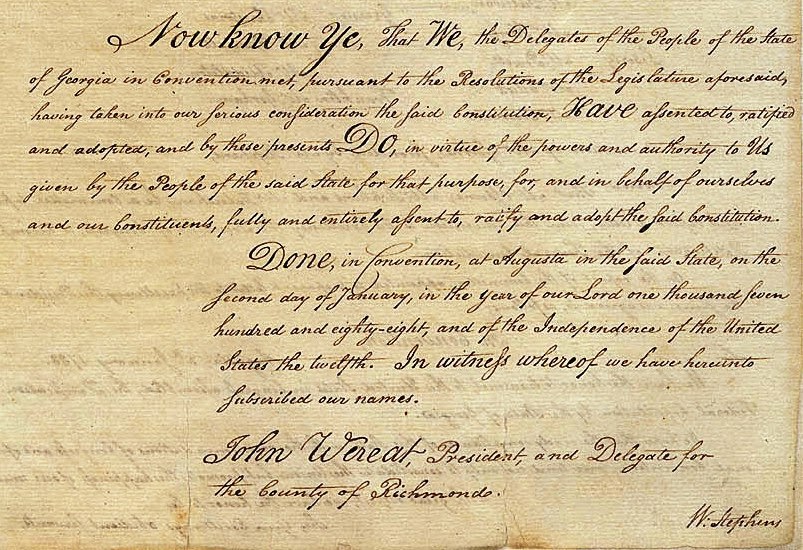 Now know Ye, That We, the Delegates of the People of the State
of Georgia in Convention met, pursuant to the Resolutions of the Legislature aforesaid,
having taken into our serious consideration the said Constitution, Have assented to, ratified
and adopted, and by these presents DO, in virtue of the powers and authority to Us
given by the People of the said State for that purpose, for, and in behalf of ourselves
and our Constituents, fully and entirely assent to, ratify and adopt the said Constitution.
Done, in Convention, at Augusta in the said State, on the
second day of January, in the year of our Lord one thousand seven
hundred and eighty-eight, and of the Independence of the United
States the twelfth. In witness whereof we have hereunto
subscribed our names.
John Wereat, President, and Delegate for
the County of Richmond.
W: Stephens